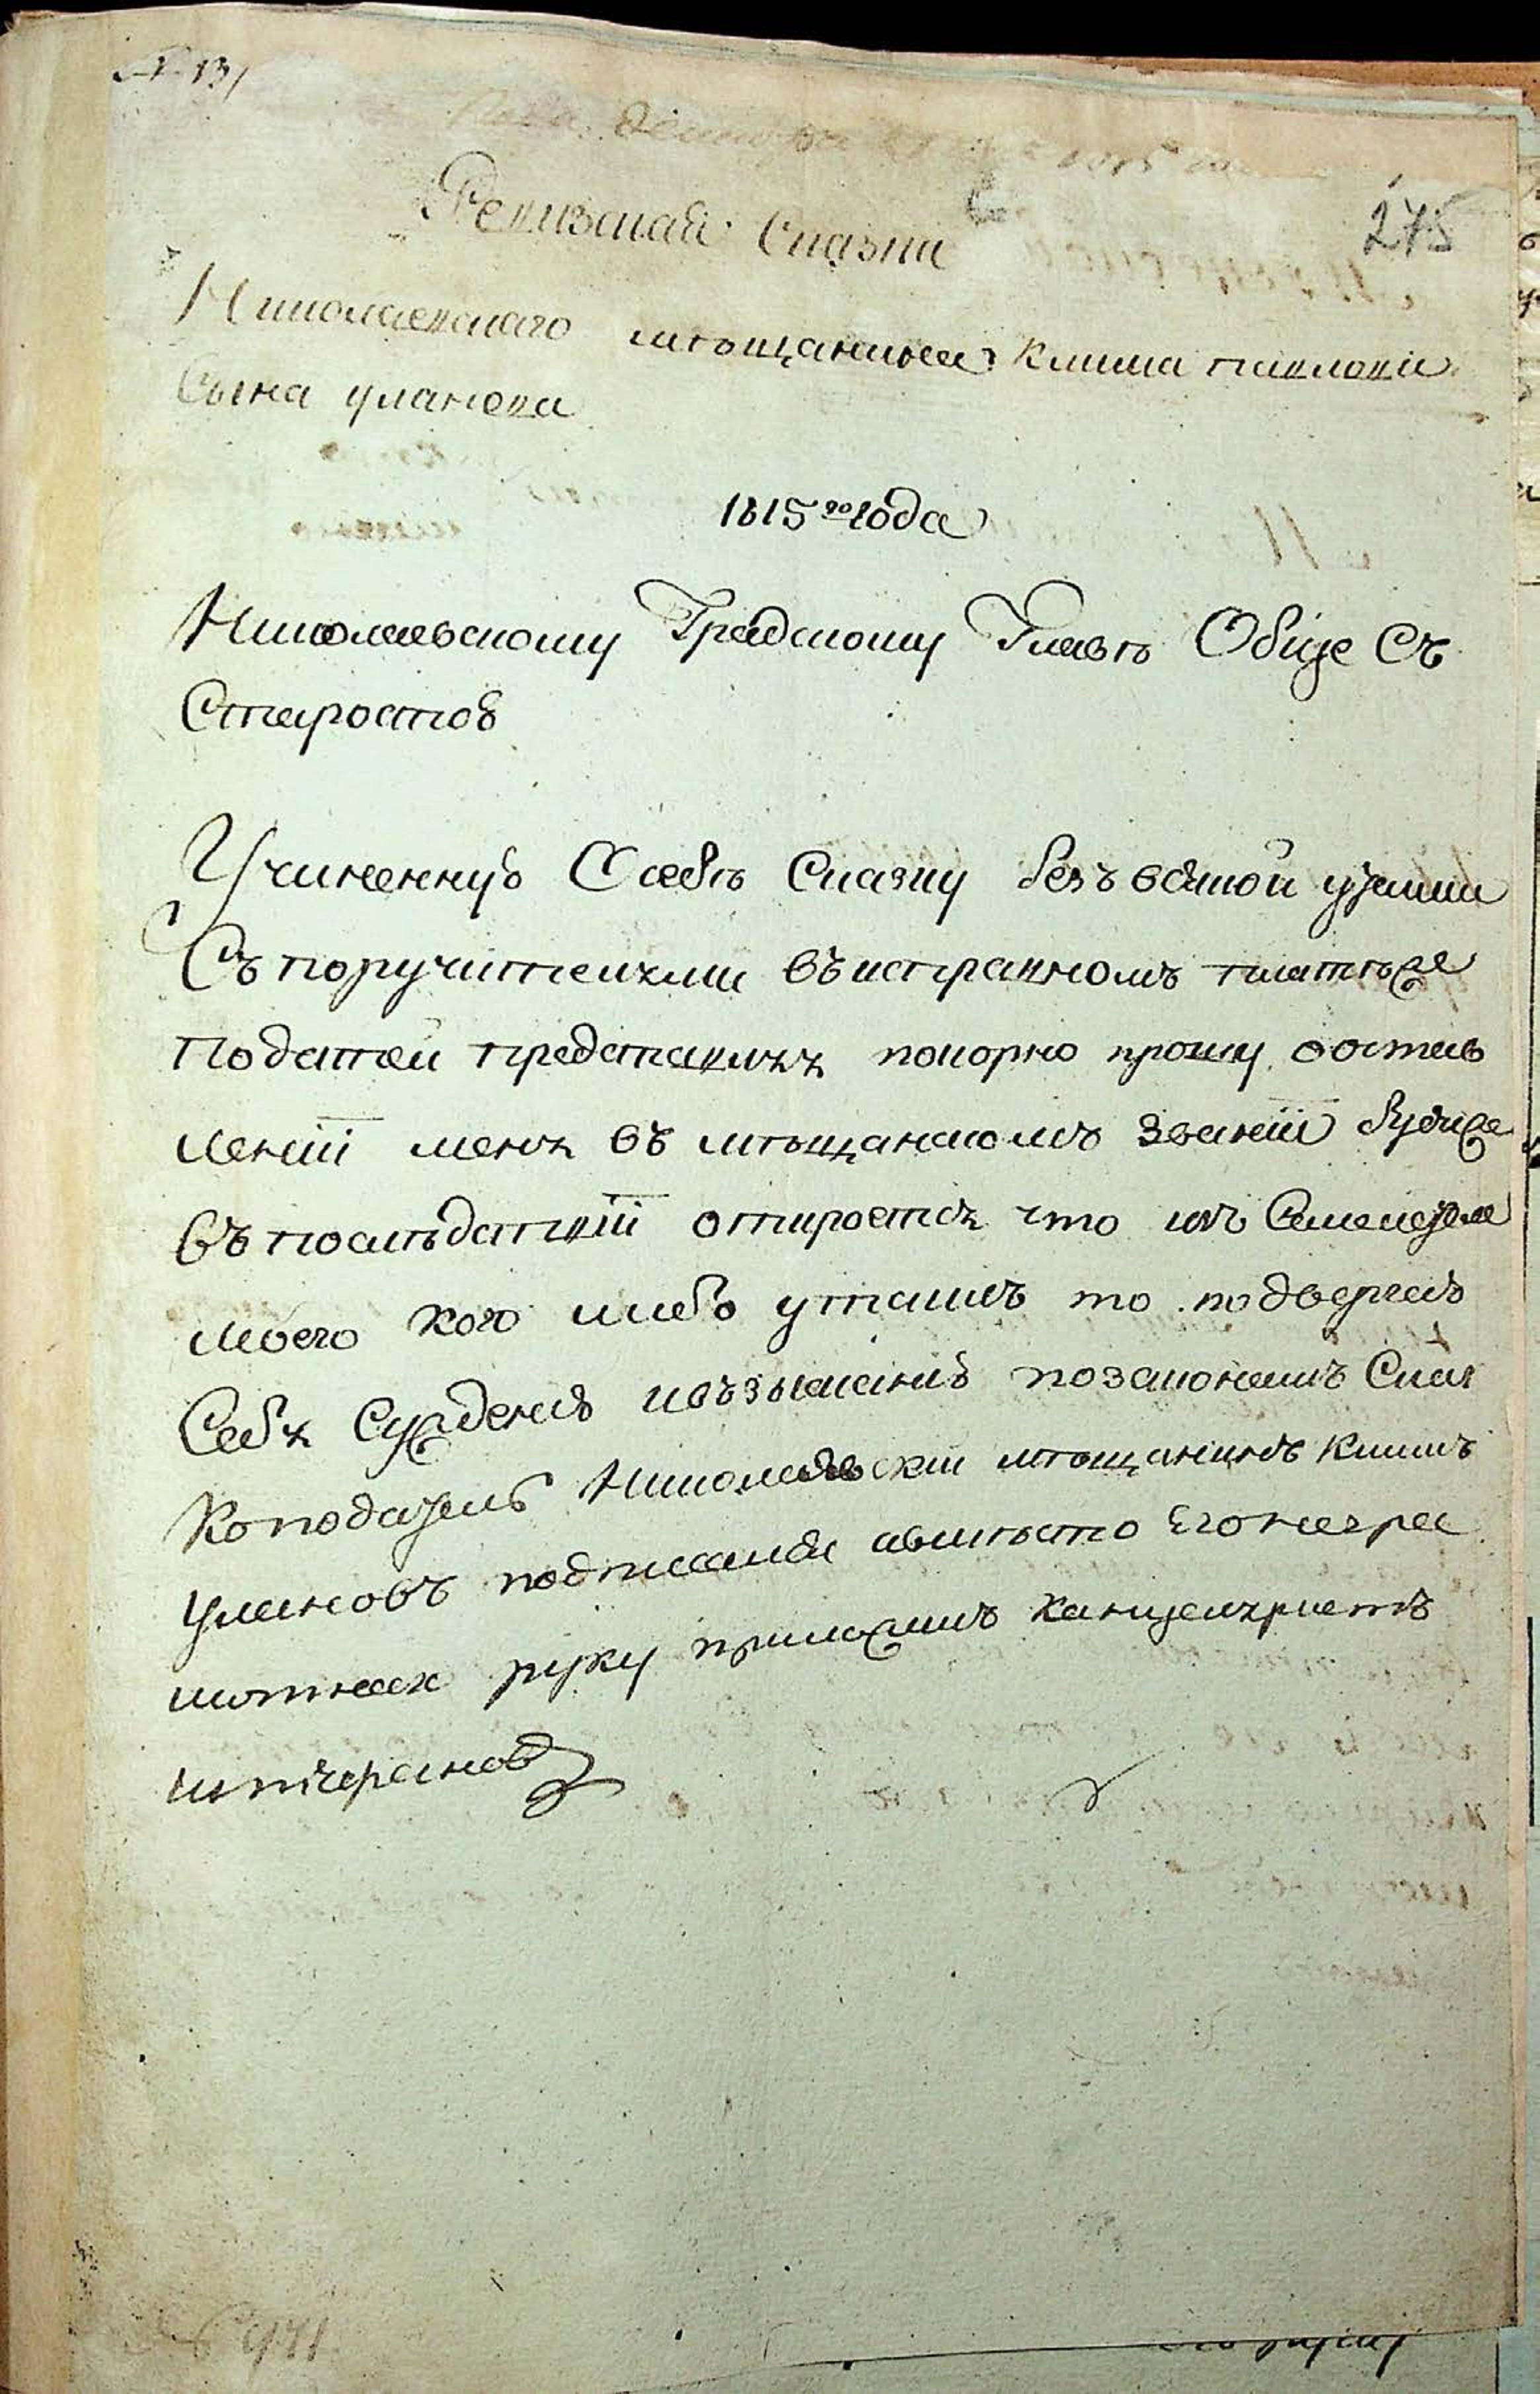 № 131
275
Ревизская Сказка
Николаевскаго мѣщанина Клима павлова
Сына уланова
1815го года
Николаевскому Градскому Главѣ Обще Съ
Старостов
Учиненную О себѣ Сказку безъ всякой утайки
Съ поручительми въ исправномъ платеже
Податей представляя покорно прошу о остав
лении меня въ мѣщанскомъ звании буде же
въ последствии откроется что изъ Семейства
моего кого либо утаилъ то подвергаю
Себя Суждению и взысканию по законамъ Сказ
Коподатель Николаевский мѣщанинъ Климъ
Улановъ подписался а вместо Его негра
мотнаго руку приложилъ канцеляристъ